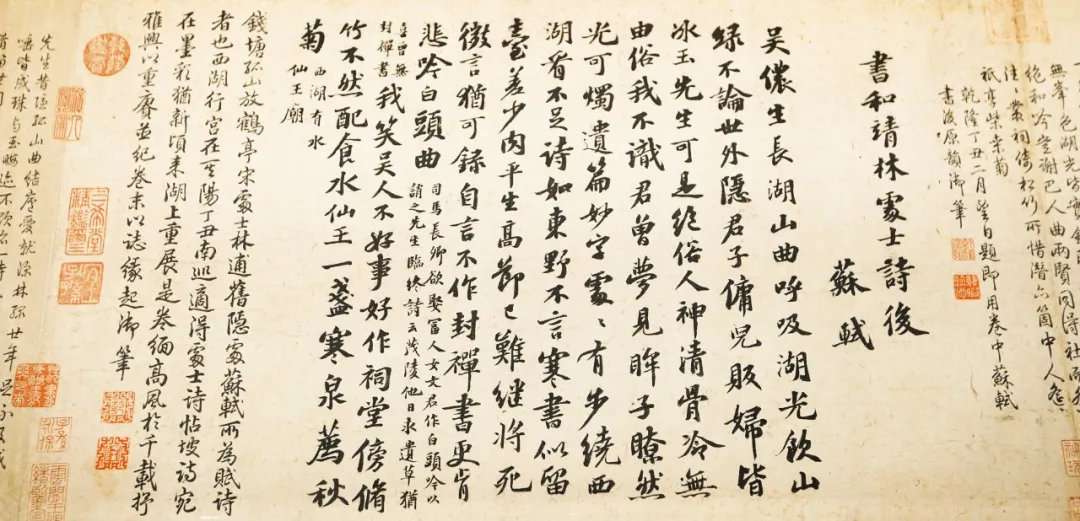 書和靖林處士詩後
蘇軾
吳儂生長湖山曲呼吸湖光飲山
綠不論世外隱君子傭兒販婦皆
冰玉先生可是絕俗人神清骨冷無
由俗我不識君曾夢見眸子瞭然
光可燭遺篇妙字處〻有步繞西
湖看不足詩如東野不言寒書似留
臺差少肉平生高節已難繼將死
微言猶可錄自言不作封禪書更肯
悲吟白頭曲
司馬長卿欲娶富人女文君作白頭吟以
誚之先生臨終詩云茂陵他日求遺草猶
喜曾無
封禪書
我笑吳人不好事好作祠堂傍脩
竹不然配食水仙王一盞寒泉薦秋
菊
西湖有水
仙王廟
祇應柴桑菊
乾隆丁丑二月望日題即用卷中蘇軾
書後原韻御筆
錢塘孤山放鶴亭宋處士林逋舊隱處蘇軾所為賦詩
者也西湖行宮在其陽丁丑南巡適得處士詩帖坡詩宛
在墨彩猶新頃來湖上重展是卷緬高風於千載抒
雅興以重賡並紀卷末以誌緣起御筆
先生昔隱孤山曲結廬愛就深林綠廿年